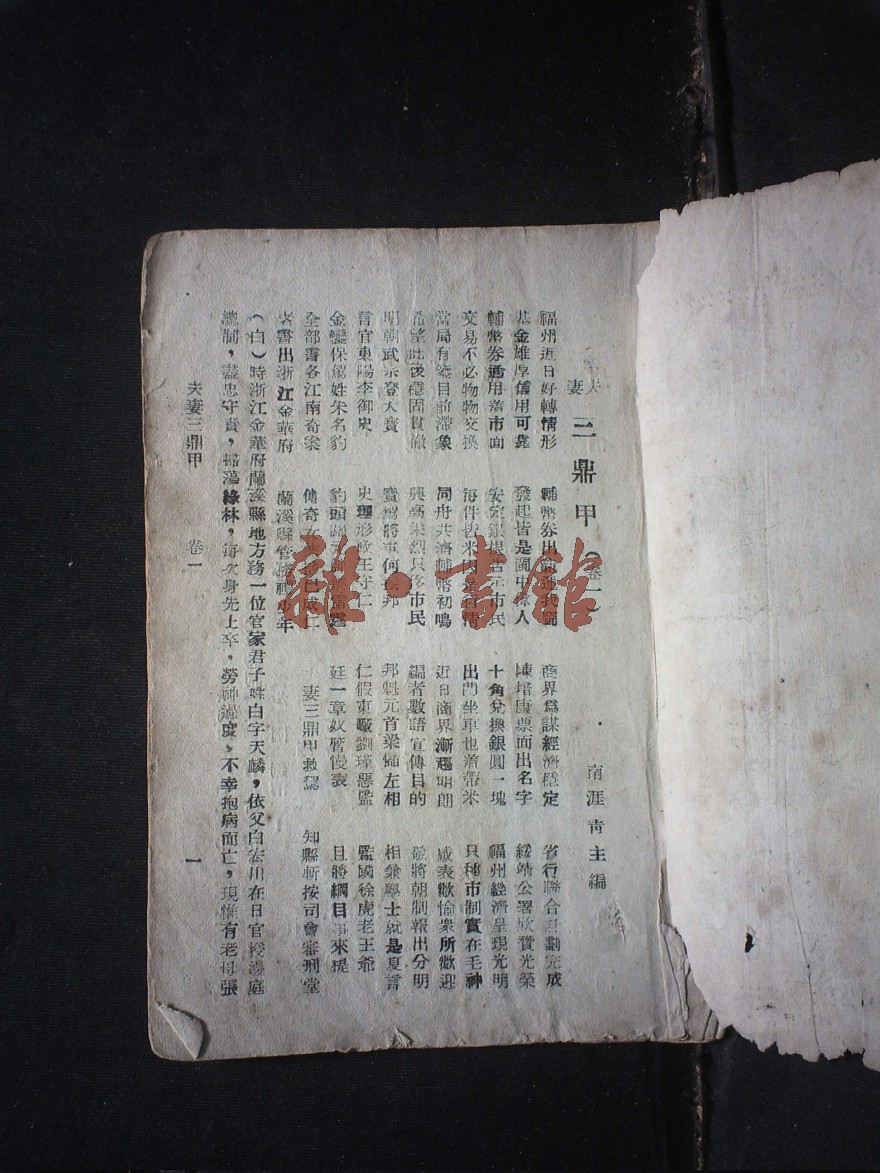 夫妻 三鼎甲（卷一） 南涯青主編
福州近日好轉情形 輔幣券出 商界爲謀經濟穩定 省行聯合計劃完成
基金雄厚信用可靠 發起皆是閩中偉人 陳培康票面出名字 綏靖公署欣贊光榮
輔幣券通用着市面 安定銀根告示市民 十角兌換銀圓一塊 福州經濟呈現光明
交易不必物物交換 每件皆米 出門坐車也着帶米 只種市制實在毛神
當局有 目前滯象 同舟共濟輔幣初鳴 近日商界漸趨明朗 咸表歡愉衆所歡迎
希望此後穩固貫徹 興高采烈只移市民 編者數語宣傳目的 敬將朝制報出分明
明朝武宗登大寶 寶 將軍何 邦 邦魁元首梁儲左相 相兼學士就是夏言
言官東陽李御史 史 形 王守仁 仁假東廠劉瑾惡監 監國徐虎老王爺
金鑾保駕姓朱名豹 豹頭 廷一章奴曆慢表 且將綱目 來提
全部書名江南奇案 傳奇女 成仁 妻三鼎甲救駕 知縣斬按司會審刑堂
者書出浙江金華府 蘭溪縣管 少年
（白）時浙江金華府蘭溪縣地方務一位官家君子姓白字天麟，依父白宏川在日官授 庭
總制，盡忠守責，掃蕩綠林，每次身先士卒，勞神過度，不幸抱病而亡，現惟有老母張
夫妻三鼎甲 卷一 一
雜·書館